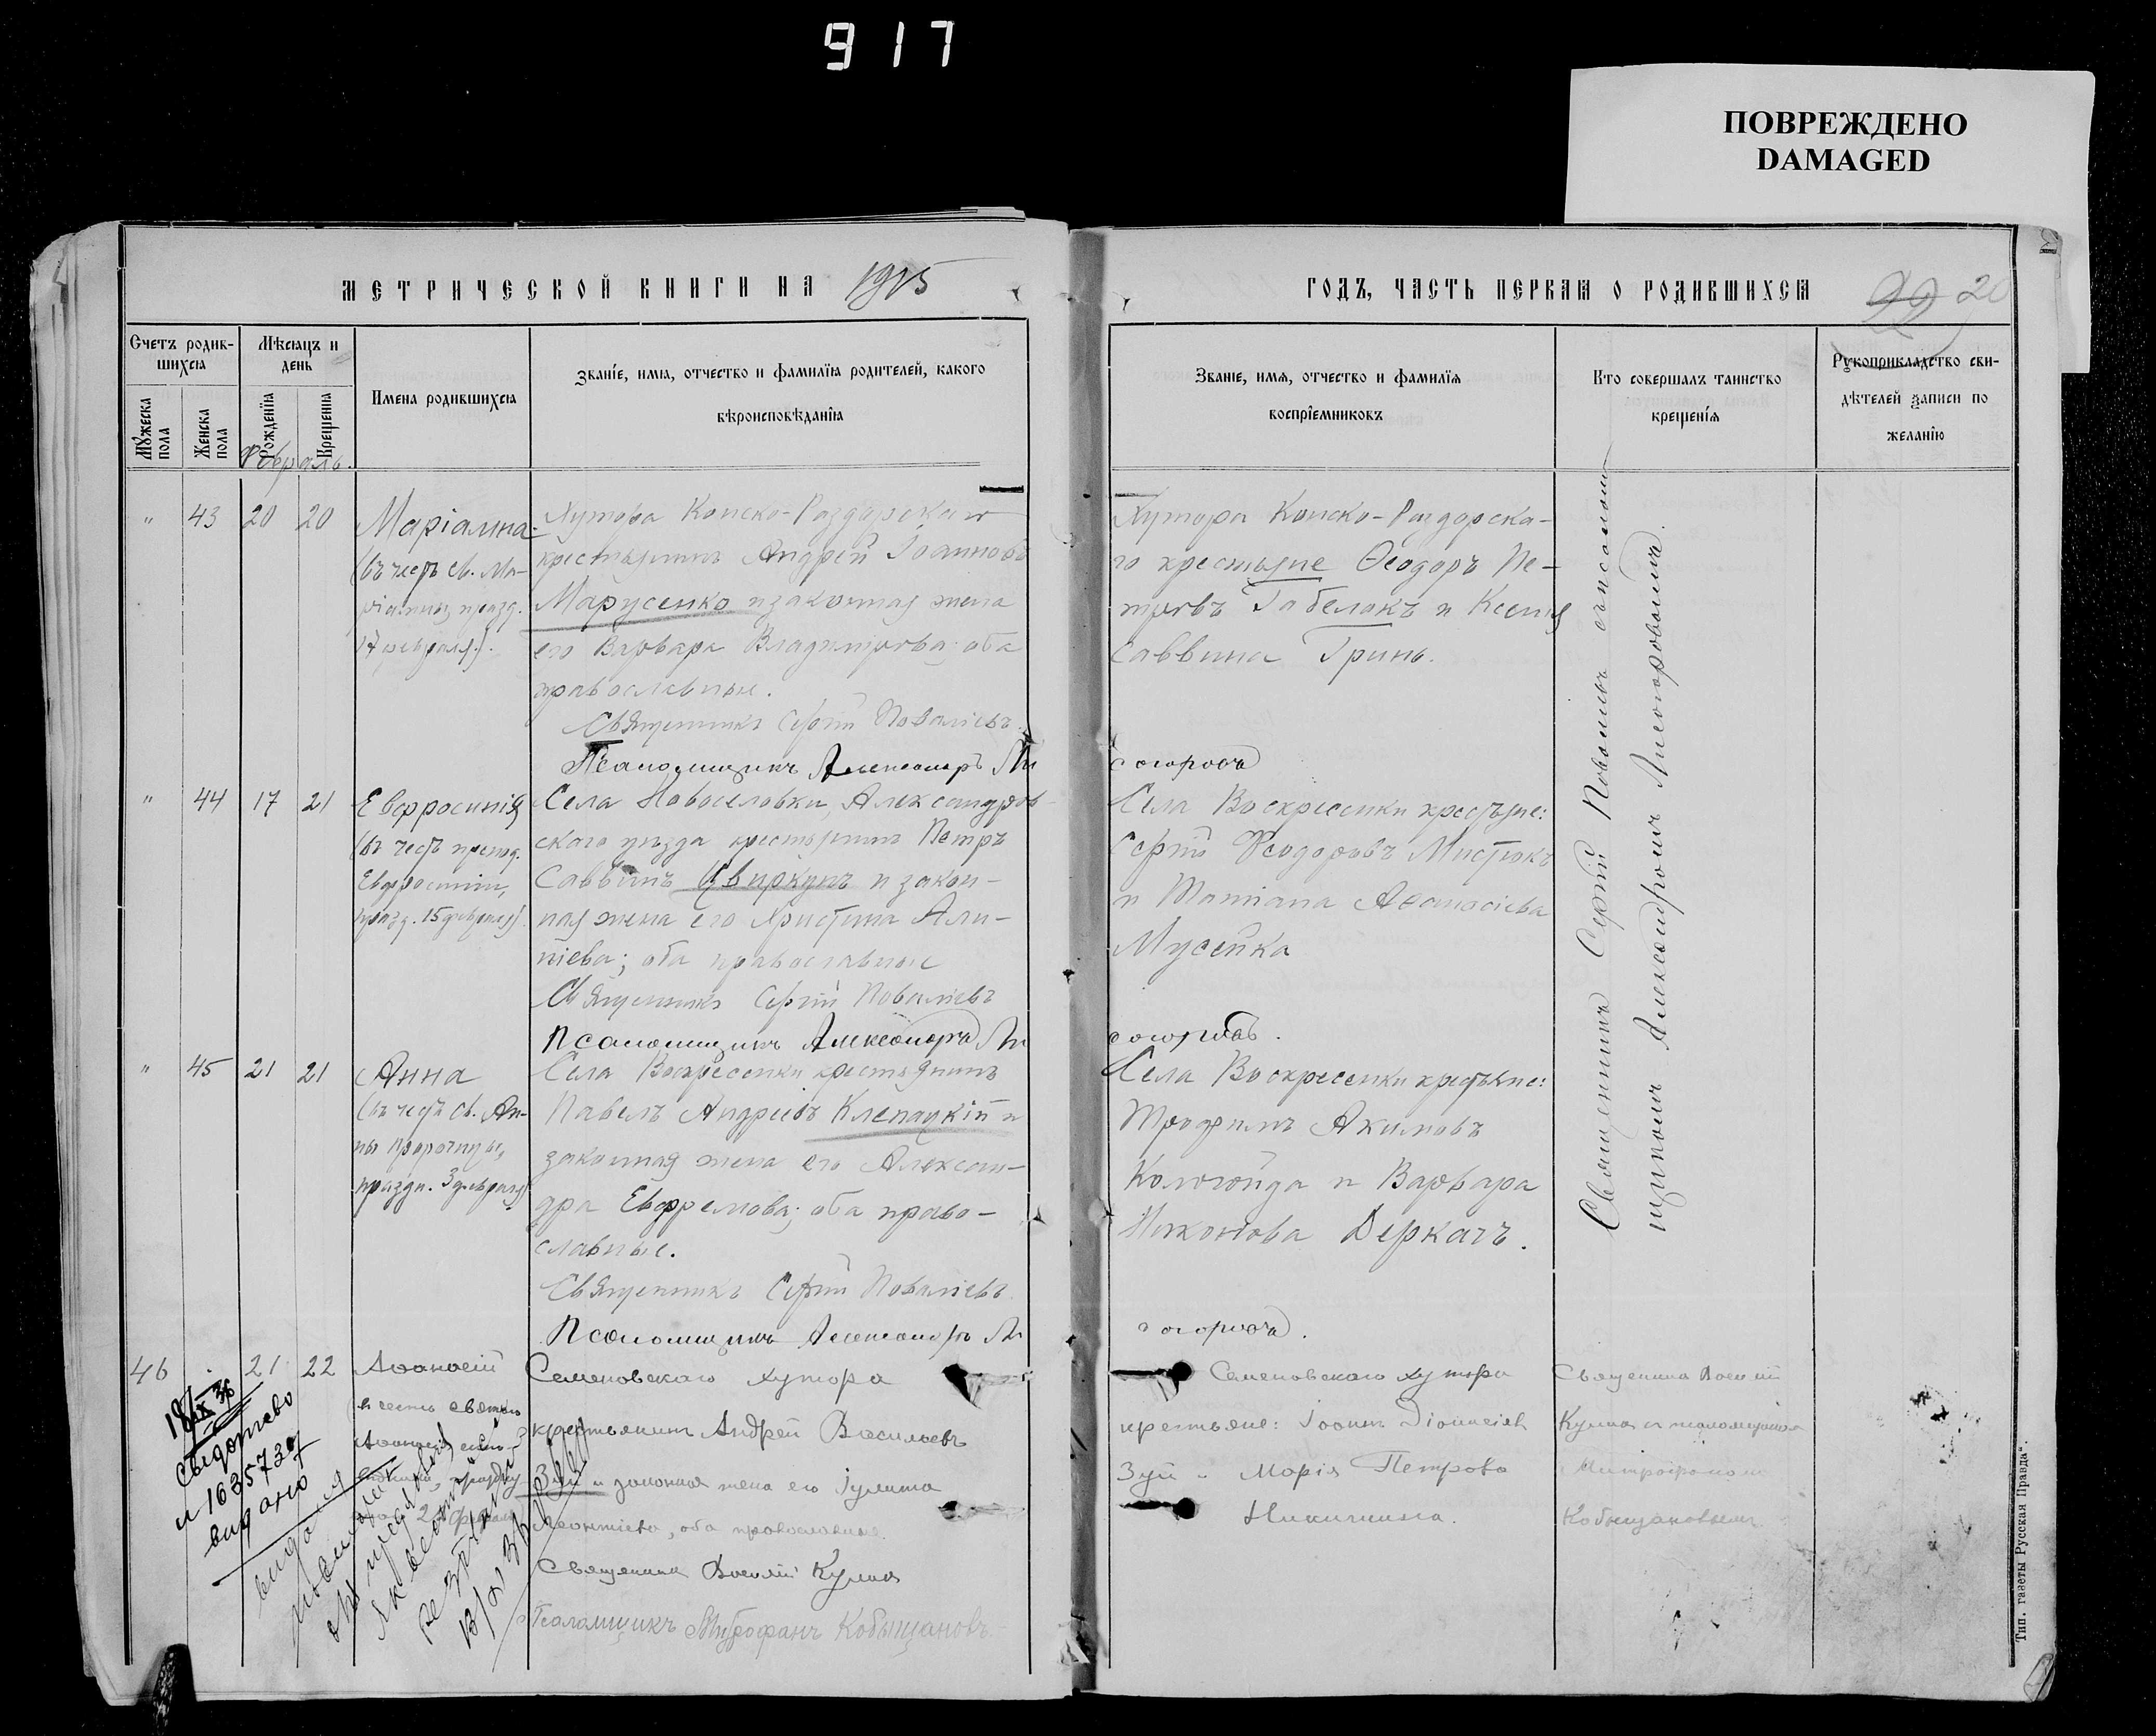 917
ПОВРЕЖДЕНО
DAMAGED
МЕТРИЧЕСКОЙ КНИГИ НА 1915
ГОДЪ, ЧАСТЬ ПЕРВАЯ О РОДИВШИХСЯ
22 20
Счетъ родив-
шихся
Мѣсяцъ и
день
Мужеска пола
Женска пола
Рожденія
Крещенія
Февраль.
Имена родившихся
Званіе, имя, отчество и фамилія родителей, какого
вѣроисповѣданія
Званіе, имя, отчество и фамилія
воспріемниковъ
Кто совершалъ таинство
крещенія
Рукоприкладство сви-
дѣтелей записи по
желанію
" 43 20 20
Маріамна
(въ честь св. Ма-
ріамны, празд.
17 февраля).
Хутора Конско-Раздорскаго
крестьянинъ Андрей Іоанновъ
Марусенко и законная жена
его Варвара Владимірова; оба
православные.
Священникъ Сергій Поваліевъ.
Псаломщикъ Александръ Ли
Хутора Конско-Раздорска-
го крестьяне Ѳеодоръ Пе-
тровъ Габелокъ и Ксенія
Саввина Гринь.
согоровъ
" 44 17 21
Евфросинія
(въ честь препод.
Евфросиніи,
празд. 15 февраля)
Села Новоселовки, Александров-
скаго уѣзда крестьянинъ Петръ
Саввинъ Цвиркунъ и закон-
ная жена его Христина Али-
піева; оба православные
Священникъ Сергій Поваліевъ
Псаломщикъ Александръ Ли
Села Воскресенки крестьяне:
Сергій Ѳеодоровъ Мистюкъ
и Татіана Аѳанасіева
Мусейка
согоровъ.
" 45 21 21
Анна
(въ честь св. Ан-
ны пророчицы,
праздн. 3 февраля)
Села Воскресенки крестьянинъ
Павелъ Андреевъ Клепацкій и
законная жена его Алексан-
дра Евфремова; оба право-
славные.
Священникъ Сергій Поваліевъ.
Псаломщикъ Александръ Ли
Села Воскресенки крестьяне:
Трофимъ Акимовъ
Кологойда и Варвара
Никонова Деркачъ.
согоровъ.
Священникъ Сергій Поваліевъ съ псалом-
щикомъ Александромъ Лисогоровымъ.
46 21 22
Аѳанасій
въ честь святого
Семеновскаго хутора
крестьянинъ Андрей Васильевъ
Зуй и законная жена его Іулита
Леонтіева, оба православные.
Священникъ Василій Кулик
Псаломщикъ Митрофанъ Кобыщановъ.
Семеновскаго хутора
крестьяне: Іоаннъ Діонисіевъ
Зуй и Марія Петрова
Никитина.
Священникъ Василій
Митрофаномъ
Кобыщановымъ
18/IX 36
Свидоцтво
№ 1635739
видано
Тип. газеты „Русская Правда“.